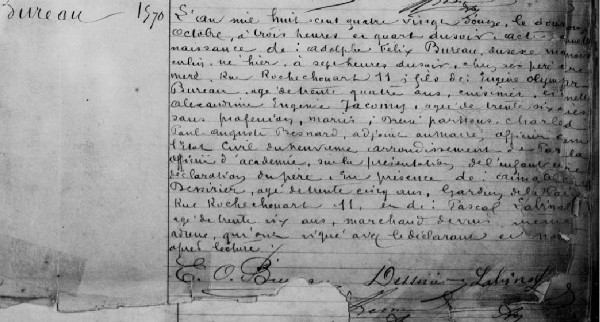 Bureau 1570
L'an mil huit cent quatre vingt douze, le douze
octobre, à trois heures un quart du soir, acte de
naissance de: Adolphe Felix Bureau, du sexe mascu
culin, né hier, à sept heures du soir, chez ses père et
mère, Rue Rochechouart 11; fils de: Eugène Olympe
Bureau, agé de trente quatre ans, cuisinier, et
Alexandrine Eugénie Jacomy, agée de trente six ans
sans profession, mariés; Dressé par Nous, Charles
Paul Auguste Besnard, adjoint au maire, officier
l'Etat Civil du neuvième arrondissement de Paris
officier d'académie, sur la présentation de l'enfant et
déclaration du père, En présence de:
Dessirier, agé de trente cinq ans, Gardien de la Paix
Rue Rochechouart 11, et de: Pascal
agé de trente six ans, marchand de vins, même
adresse, qui ont signé avec le déclarant et Nous
après lecture:
E. O. Bureau